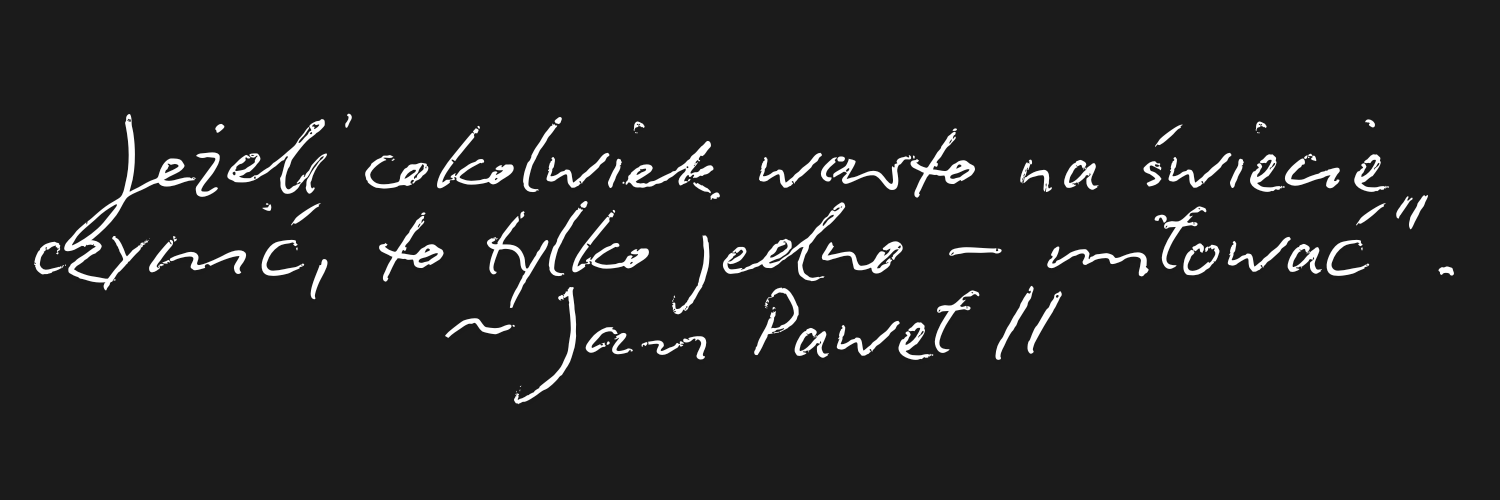 Jeżeli cokolwiek warto na świecie
czynić, to tylko jedno – miłować".
~ Jan Paweł II